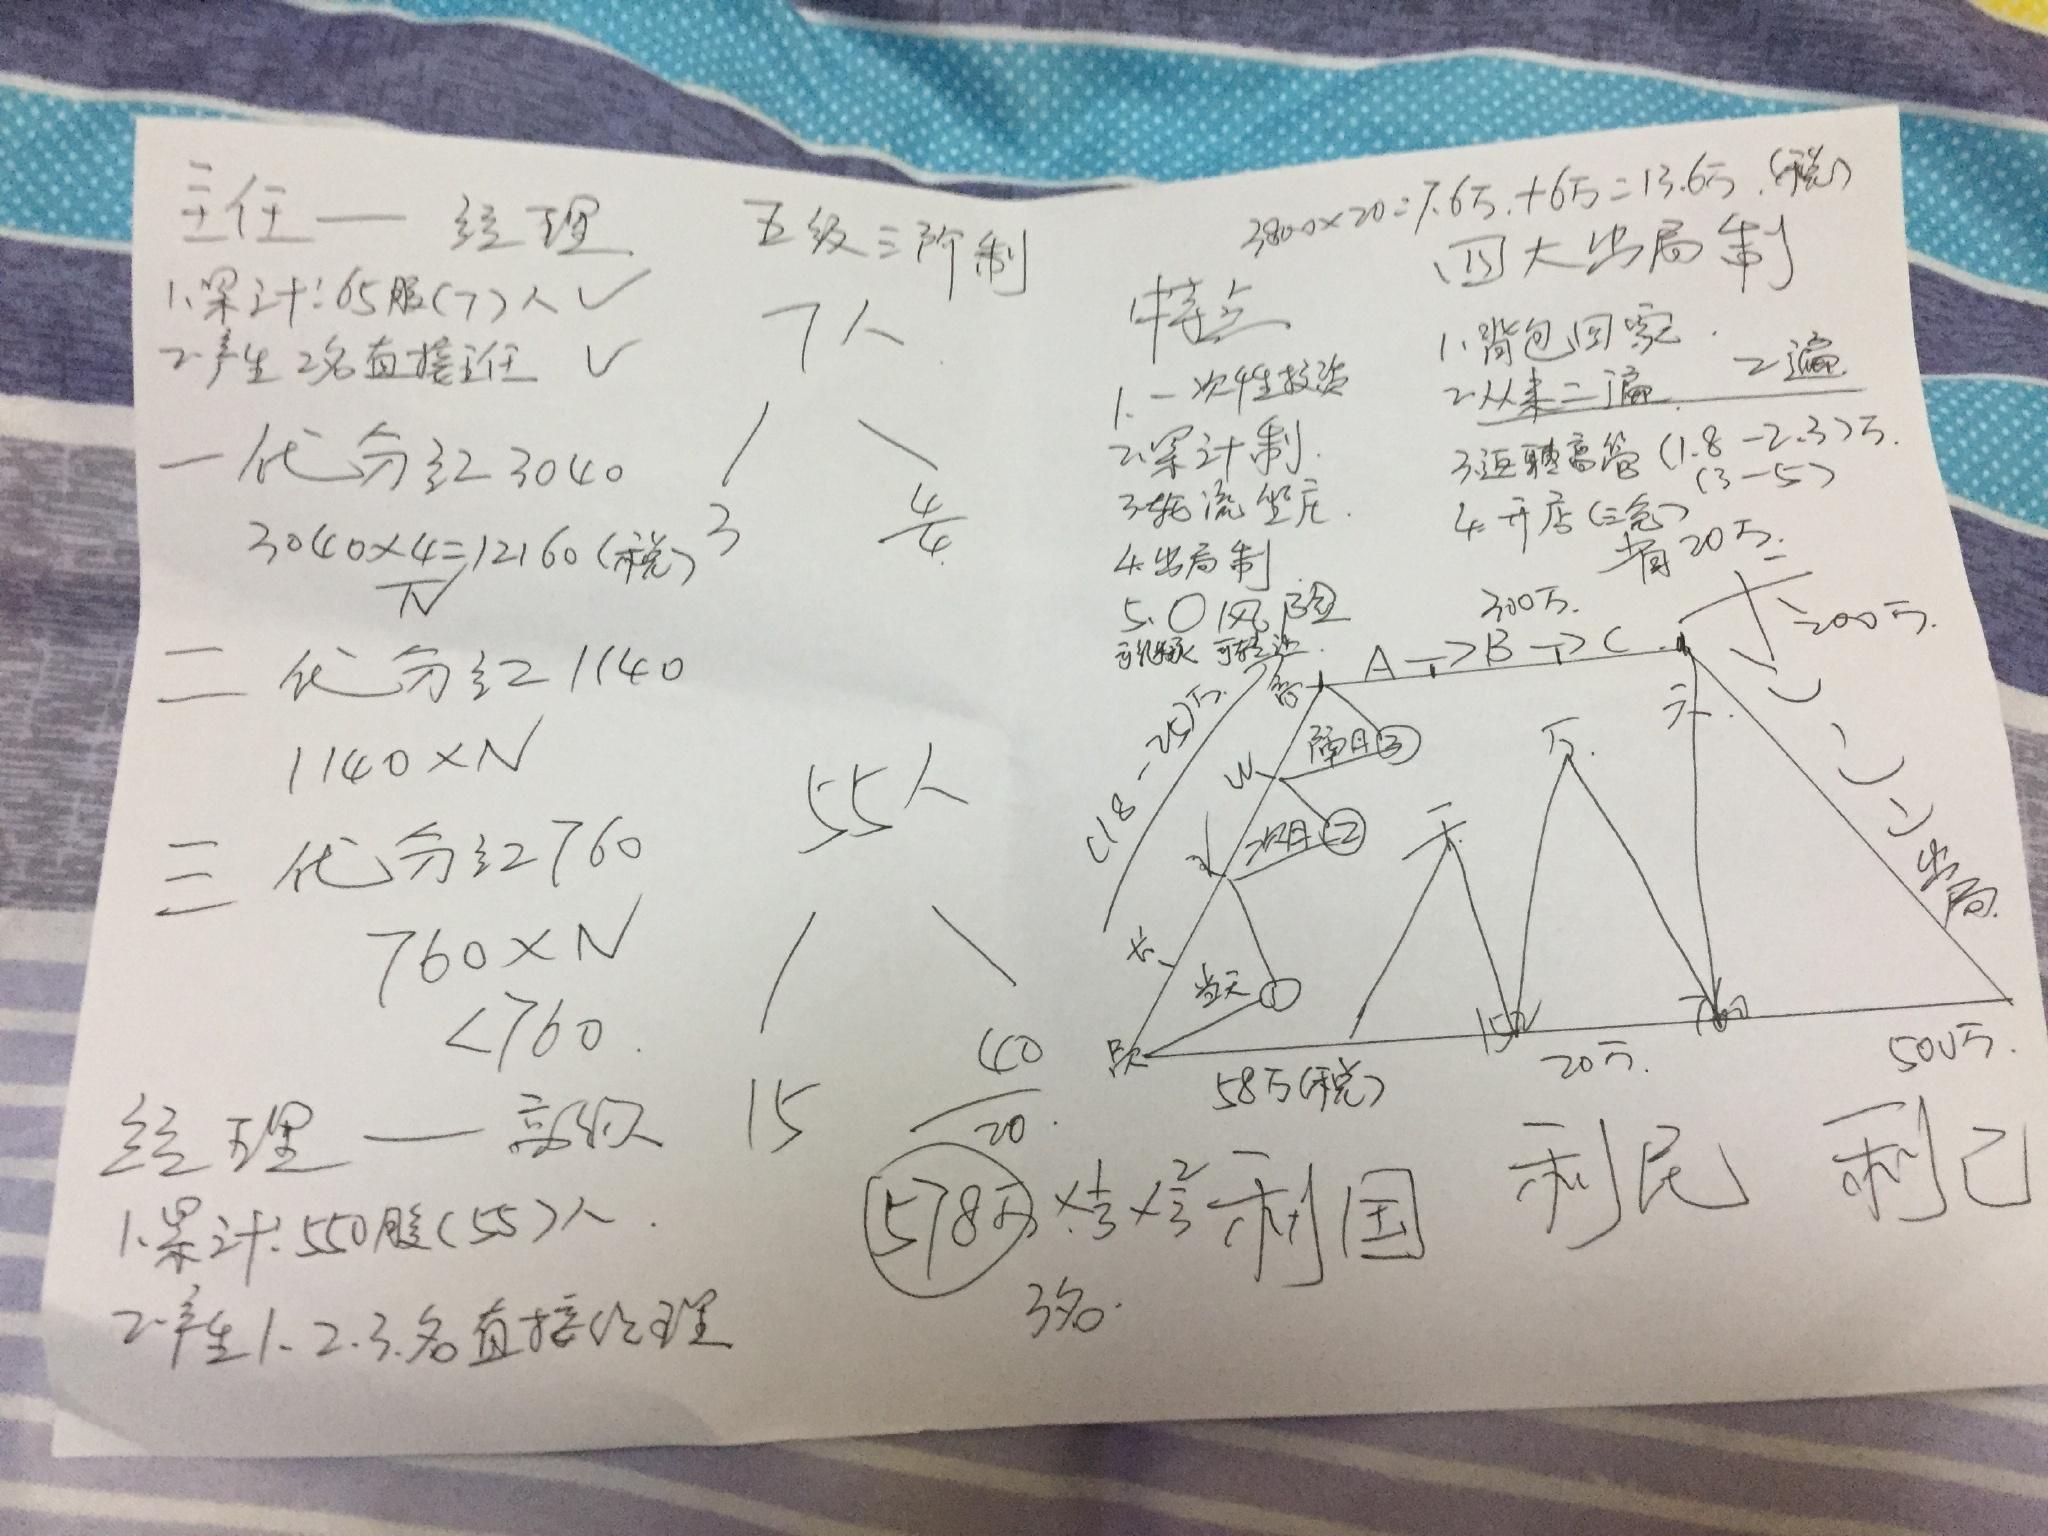 主任 — 经理
1.累计:65股(7)人 ✓
2.产生2名直接主任 ✓
一代分红3040
3040×4=12160(税)
N
二代分红1140
1140×N
三代分红760
760×N
<760.
经理 — 高级
1.累计:550股(55)人.
2.产生1.2.3.名直接经理
五级三阶制
7人
3
4
4.
55人
15
40
20.
578万 × 1/3 × 2/3
3名.
3800×20=7.6万.+6万=13.6万.(税)
四大出局制
特点
1.一次性投资
2.累计制.
3.轮流坐庄.
4.出局制
5.0风险
1.背包回家.
2.从来二遍.
2遍
3.返聘高管(1.8-2.3)万.
(3-5)
4.开店(三免)
省20万.
300万.
A→B→C
200万.
(18-25)万
隔月③
次月②
当天①
天.
万.
千
出局.
152
58万(税)
20万.
500万.
利国 利民 利己